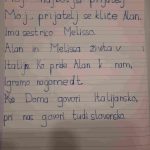 Moj najboljši prijatelj
Moj prijatelj se kliče Alan.
Ima sestrico Melisso.
Alan in Melissa živita v
Italiji. Ko pride Alan k nam,
igramo nogomet.
Ko Doma govori Italijansko,
pri nas govori tudi slovensko.